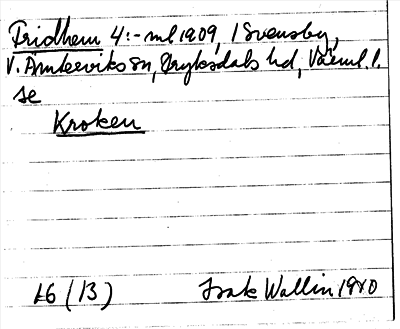 Fridhem 4:- ml 1909, i Svensby,
V. Ämterviks sn, Fryksdals hd, Värml. l.
se
Kroken
L6 (13)
Isak Wallin 1910